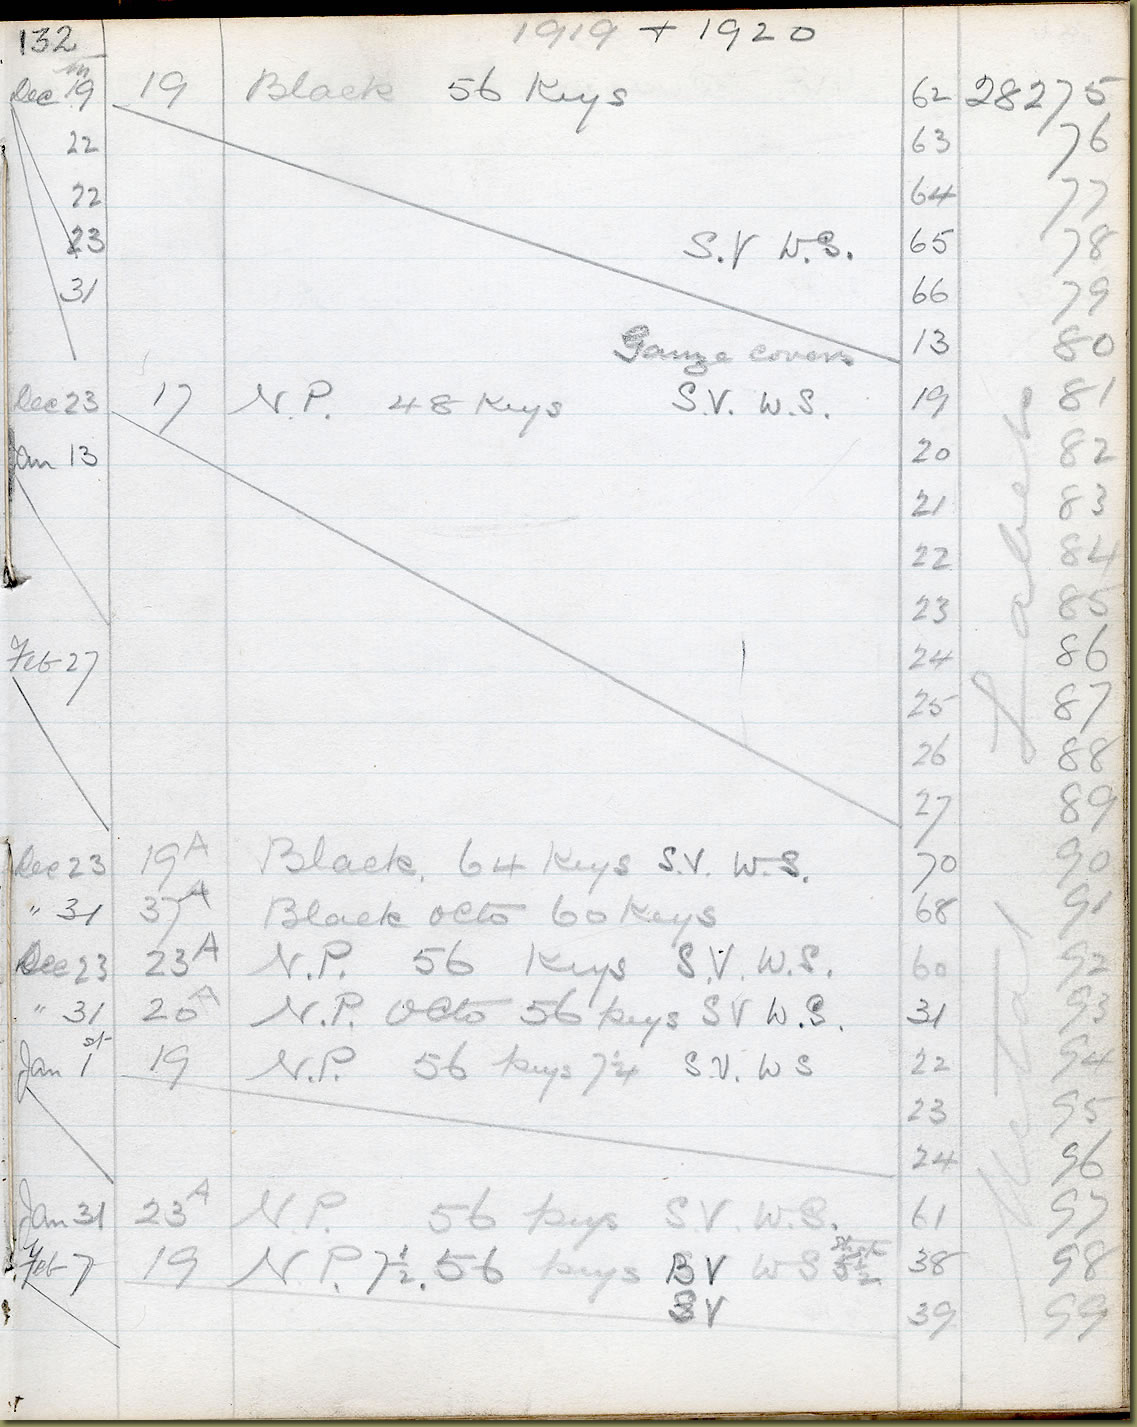 132 1919 + 1920
Dec 19 19 Black 56 Keys 62 28275
22 63 76
22 64 77
23 S.V W.S. 65 78
31 66 79
Gauze covers 13 80
Dec 23 17 N.P. 48 Keys S.V. W.S. 19 81
Jan 13 20 82
21 83
22 84
23 85
Feb 27 24 86
25 87
26 88
27 89
Dec 23 19A Black. 64 Keys S.V. W.S. 70 90
" 31 37A Black Octo 60 Keys 68 91
Dec 23 23A N.P. 56 Keys S.V. W.S. 60 92
" 31 20A N.P. Octo 56 keys SV W.S. 31 93
Jan 1st 19 N.P. 56 keys 7¼ S.V. W S 22 94
23 95
24 96
Jan 31 23A N.P. 56 keys S.V W.S. 61 97
Feb 7 19 N.P. 7½. 56 keys B V W S 38 98
S V 39 99
Labels
Metal